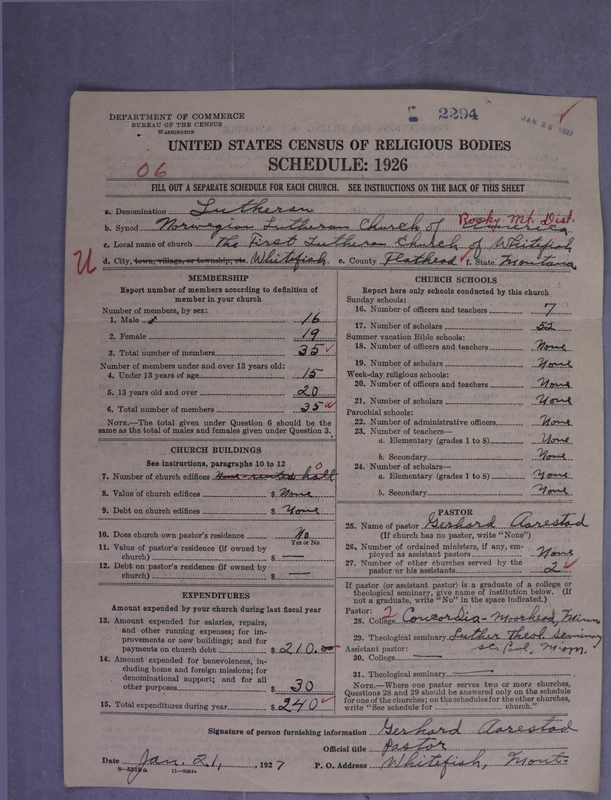 DEPARTMENT OF COMMERCE
BUREAU OF THE CENSUS
WASHINGTON
2294
JAN 28 1927
UNITED STATES CENSUS OF RELIGIOUS BODIES
SCHEDULE: 1926
06
FILL OUT A SEPARATE SCHEDULE FOR EACH CHURCH. SEE INSTRUCTIONS ON THE BACK OF THIS SHEET
a. Denomination Lutheran
Rocky Mt. Dist.
b. Synod Norwegian Lutheran Church of America
c. Local name of church The First Lutheran Church of Whitefish
U
d. City, town, village, or township, etc. Whitefish e. County Flathead f. State Montana
MEMBERSHIP
Report number of members according to definition of
member in your church
Number of members, by sex:
1. Male 16
2. Female 19
3. Total number of members 35
Number of members under and over 13 years old:
4. Under 13 years of age 15
5. 13 years old and over 20
6. Total number of members 35
NOTE.—The total given under Question 6 should be the
same as the total of males and females given under Question 3.
CHURCH BUILDINGS
See instructions, paragraphs 10 to 12
7. Number of church edifices None - rented hall 0
8. Value of church edifices $ None
9. Debt on church edifices $ None
10. Does church own pastor's residence No
Yes or No
11. Value of pastor's residence (if owned by
church) $ —
12. Debt on pastor's residence (if owned by
church) $ —
EXPENDITURES
Amount expended by your church during last fiscal year
13. Amount expended for salaries, repairs,
and other running expenses; for im-
provements or new buildings; and for
payments on church debt $ 210.00
14. Amount expended for benevolences, in-
cluding home and foreign missions; for
denominational support; and for all
other purposes $ 30
15. Total expenditures during year $ 240
CHURCH SCHOOLS
Report here only schools conducted by this church
Sunday schools:
16. Number of officers and teachers 7
17. Number of scholars 52
Summer vacation Bible schools:
18. Number of officers and teachers None
19. Number of scholars None
Week-day religious schools:
20. Number of officers and teachers None
21. Number of scholars None
Parochial schools:
22. Number of administrative officers None
23. Number of teachers—
a. Elementary (grades 1 to 8) None
b. Secondary None
24. Number of scholars—
a. Elementary (grades 1 to 8) None
b. Secondary None
PASTOR
25. Name of pastor Gerhard Aarestad
(If church has no pastor, write "None")
26. Number of ordained ministers, if any, em-
ployed as assistant pastors None
27. Number of other churches served by the
pastor or his assistants 2
If pastor (or assistant pastor) is a graduate of a college or
theological seminary, give name of institution below. (If
not a graduate, write "No" in the space indicated.)
Pastor: 2
28. College Concordia - Moorhead, Minn
29. Theological seminary Luther Theol. Seminary
Assistant pastor: St. Paul, Minn.
30. College —
31. Theological seminary —
NOTE.—Where one pastor serves two or more churches,
Questions 28 and 29 should be answered only on the schedule
for one of the churches; on the schedules for the other churches,
write "See schedule for church."
Signature of person furnishing information Gerhard Aarestad
Official title Pastor
Date Jan. 21, 1927 P. O. Address Whitefish, Mont.